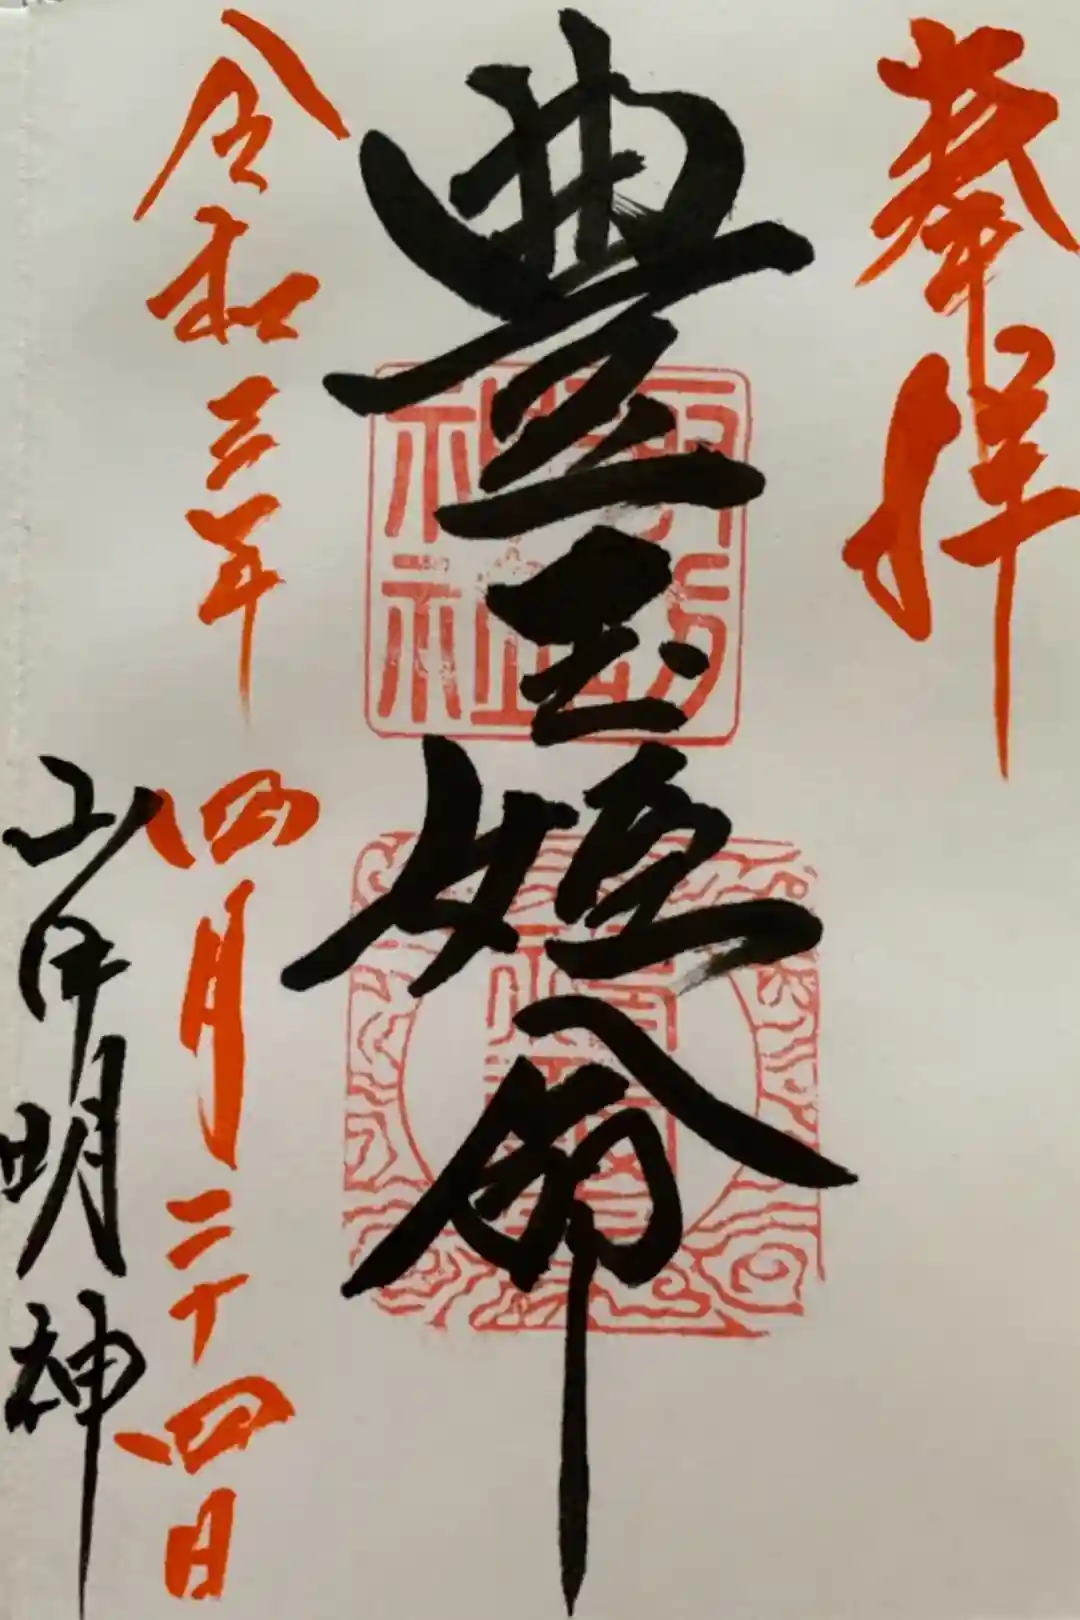 奉拝
豊玉姫命
令和三年四月二十四日
明神